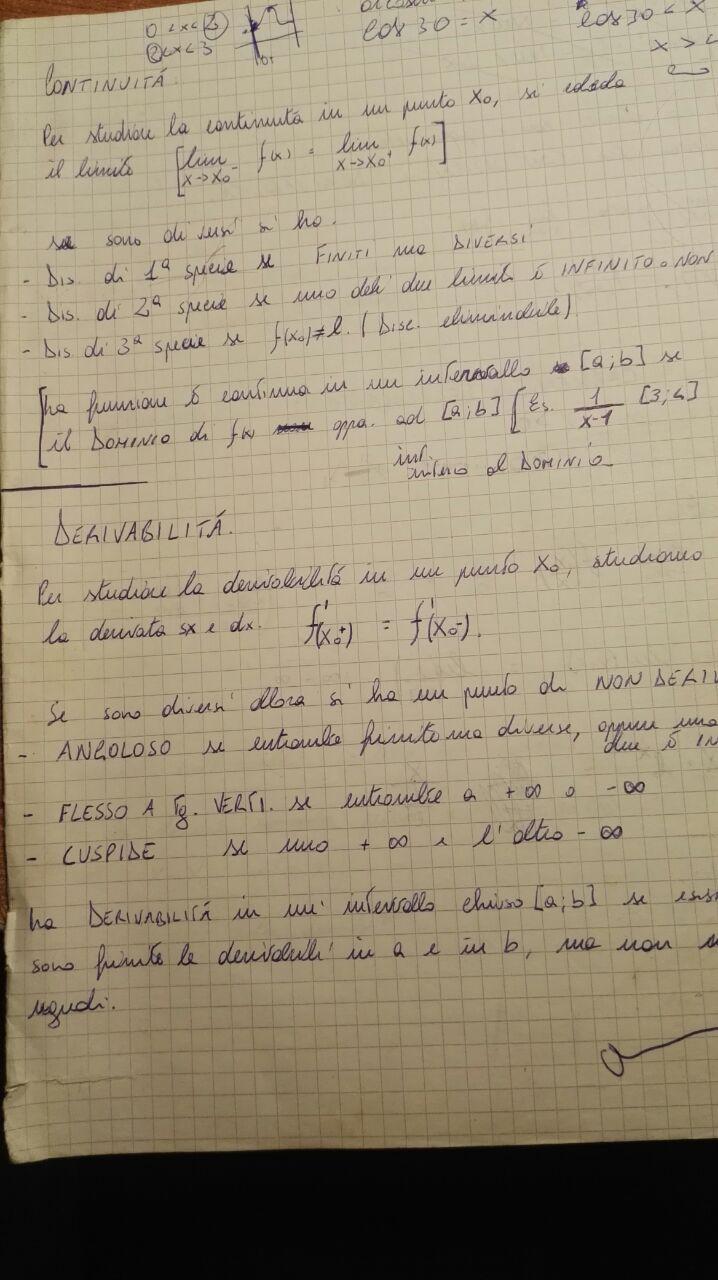 0 < x < 2
2 < x < 3
cos 30 = x
cos 30 < x
x >
CONTINUITÁ
Per studiare la continuità in un punto X₀, si calcola
il limite [lim x→x₀⁻ f(x) = lim x→x₀⁺ f(x)]
se sono diversi si ha.
- Dis. di 1ª specie se FINITI ma DIVERSI
- Dis. di 2ª specie se uno dei due limiti è INFINITO o NON
- Dis di 3ª specie se f(x₀)≠l. (Disc. eliminabile)
[La funzione è continua in un intervallo [a;b] se
il DOMINIO di f(x) appa. ad [a;b] [Es. 1/x-1 [3;4]
int.
intero al DOMINIO
DERIVABILITÁ.
Per studiare la derivabilità in un punto X₀, studiamo
la derivata sx e dx. f'(x₀⁺) = f'(x₀⁻).
Se sono diversi allora si ha un punto di NON DERIV
- ANGOLOSO se entrambe finite ma diverse, oppure una
due è IN
- FLESSO A Tg. VERTI. se entrambe a +∞ o -∞
- CUSPIDE se uno +∞ e l'altro -∞
La DERIVABILITÁ in un' intervallo chiuso [a;b] se
sono finite le in a e in b, ma non
uguali.